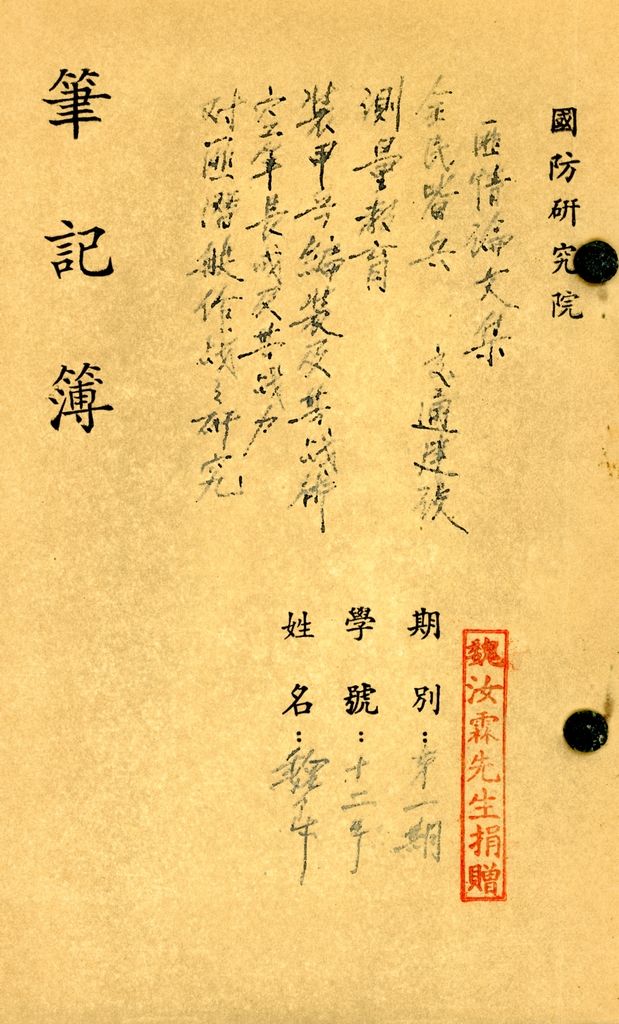 國防研究院
匪情論文集
全民皆兵 交通建設
測量教育
裝甲兵編裝及其戰術
空軍長成及其战力
对匪潛艇作战之研究
筆記簿
期別：第一期
學號：十二号
姓名：
魏汝霖先生捐贈